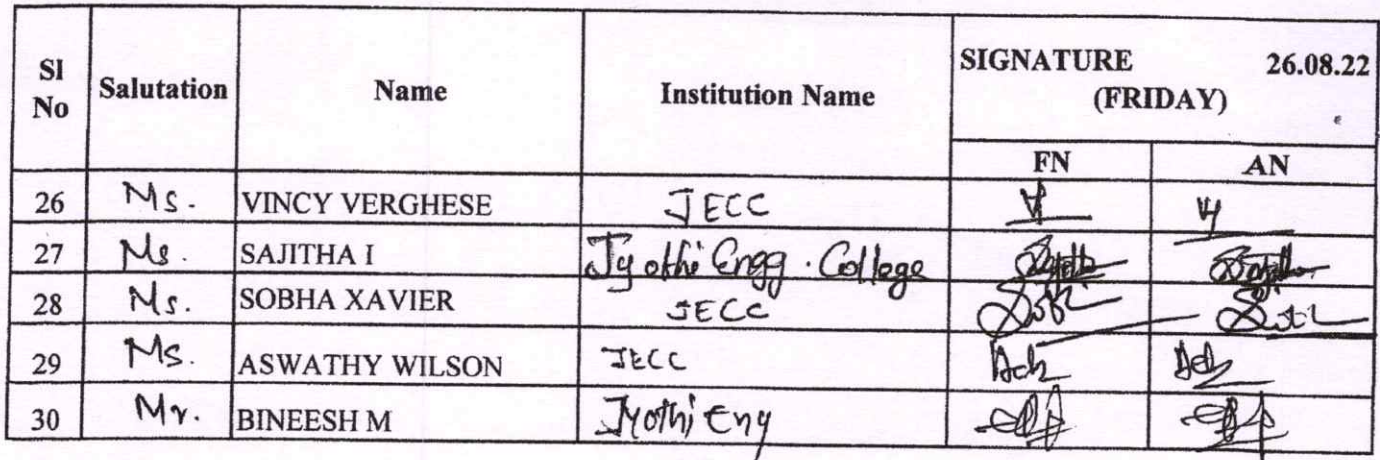 Sl No Salutation Name Institution Name SIGNATURE 26.08.22 (FRIDAY)
FN AN
26 Ms. VINCY VERGHESE JECC
27 Ms. SAJITHA I Jyothi Engg. College
28 Ms. SOBHA XAVIER JECC
29 Ms. ASWATHY WILSON JECC
30 Mr. BINEESH M Jyothi Eng